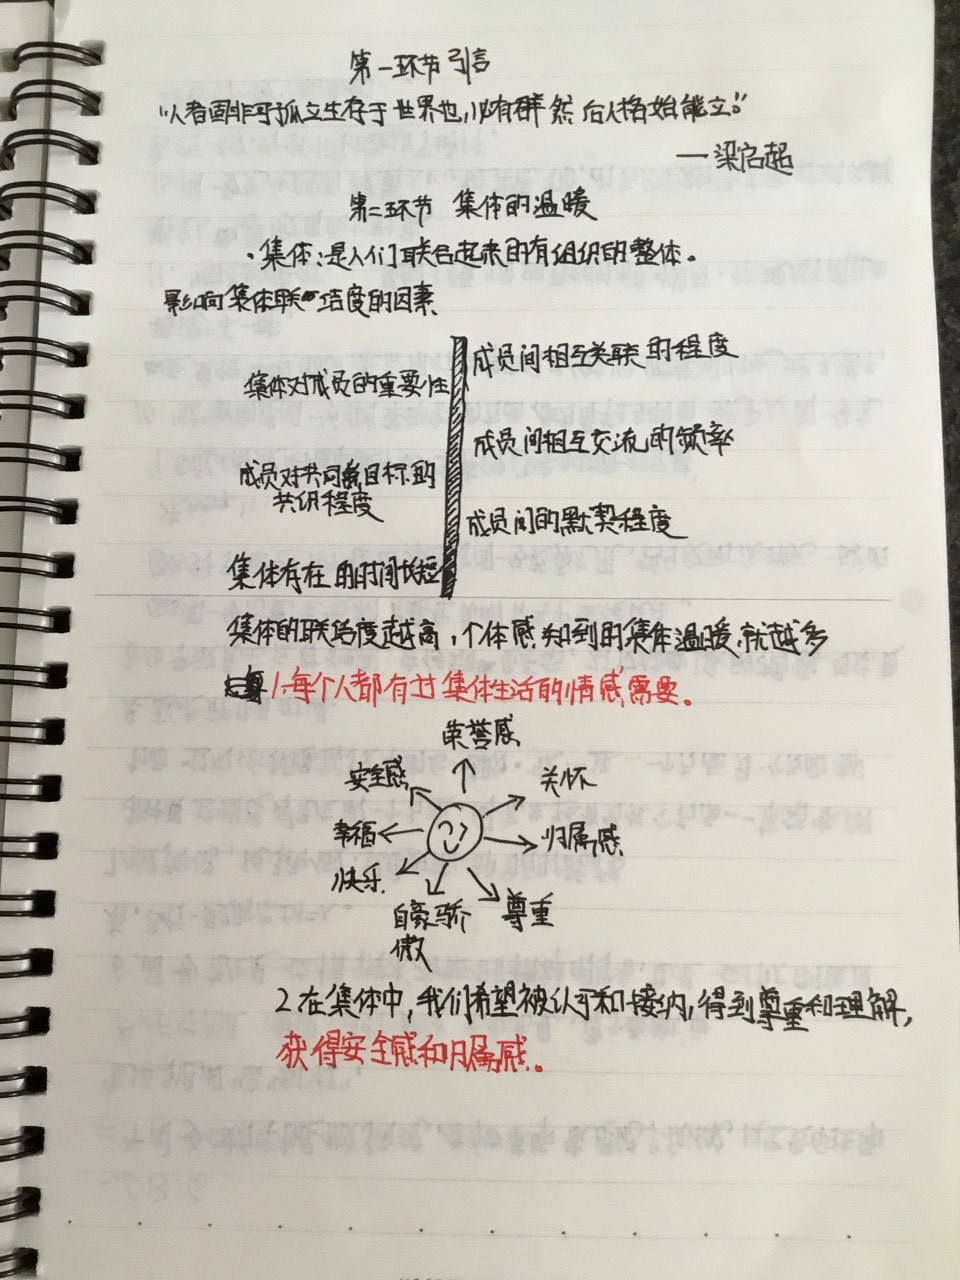 第一环节 引言
“人者固非可孤立生存于世界也,必有群然后人格始能立。”
——梁启超
第二环节 集体的温暖
·集体:是人们联合起来的有组织的整体。
影响集体联结度的因素
成员间相互关联的程度
集体对成员的重要性
成员间相互交流的频率
成员对共同目标的
共识程度
成员间的默契程度
集体存在的时间长短
集体的联结度越高,个体感知到的集体温暖就越多
1.每个人都有过集体生活的情感需要。
荣誉感
安全感
关怀
幸福
归属感
快乐
自豪骄
傲
尊重
2.在集体中,我们希望被认可和接纳,得到尊重和理解,
获得安全感和归属感。